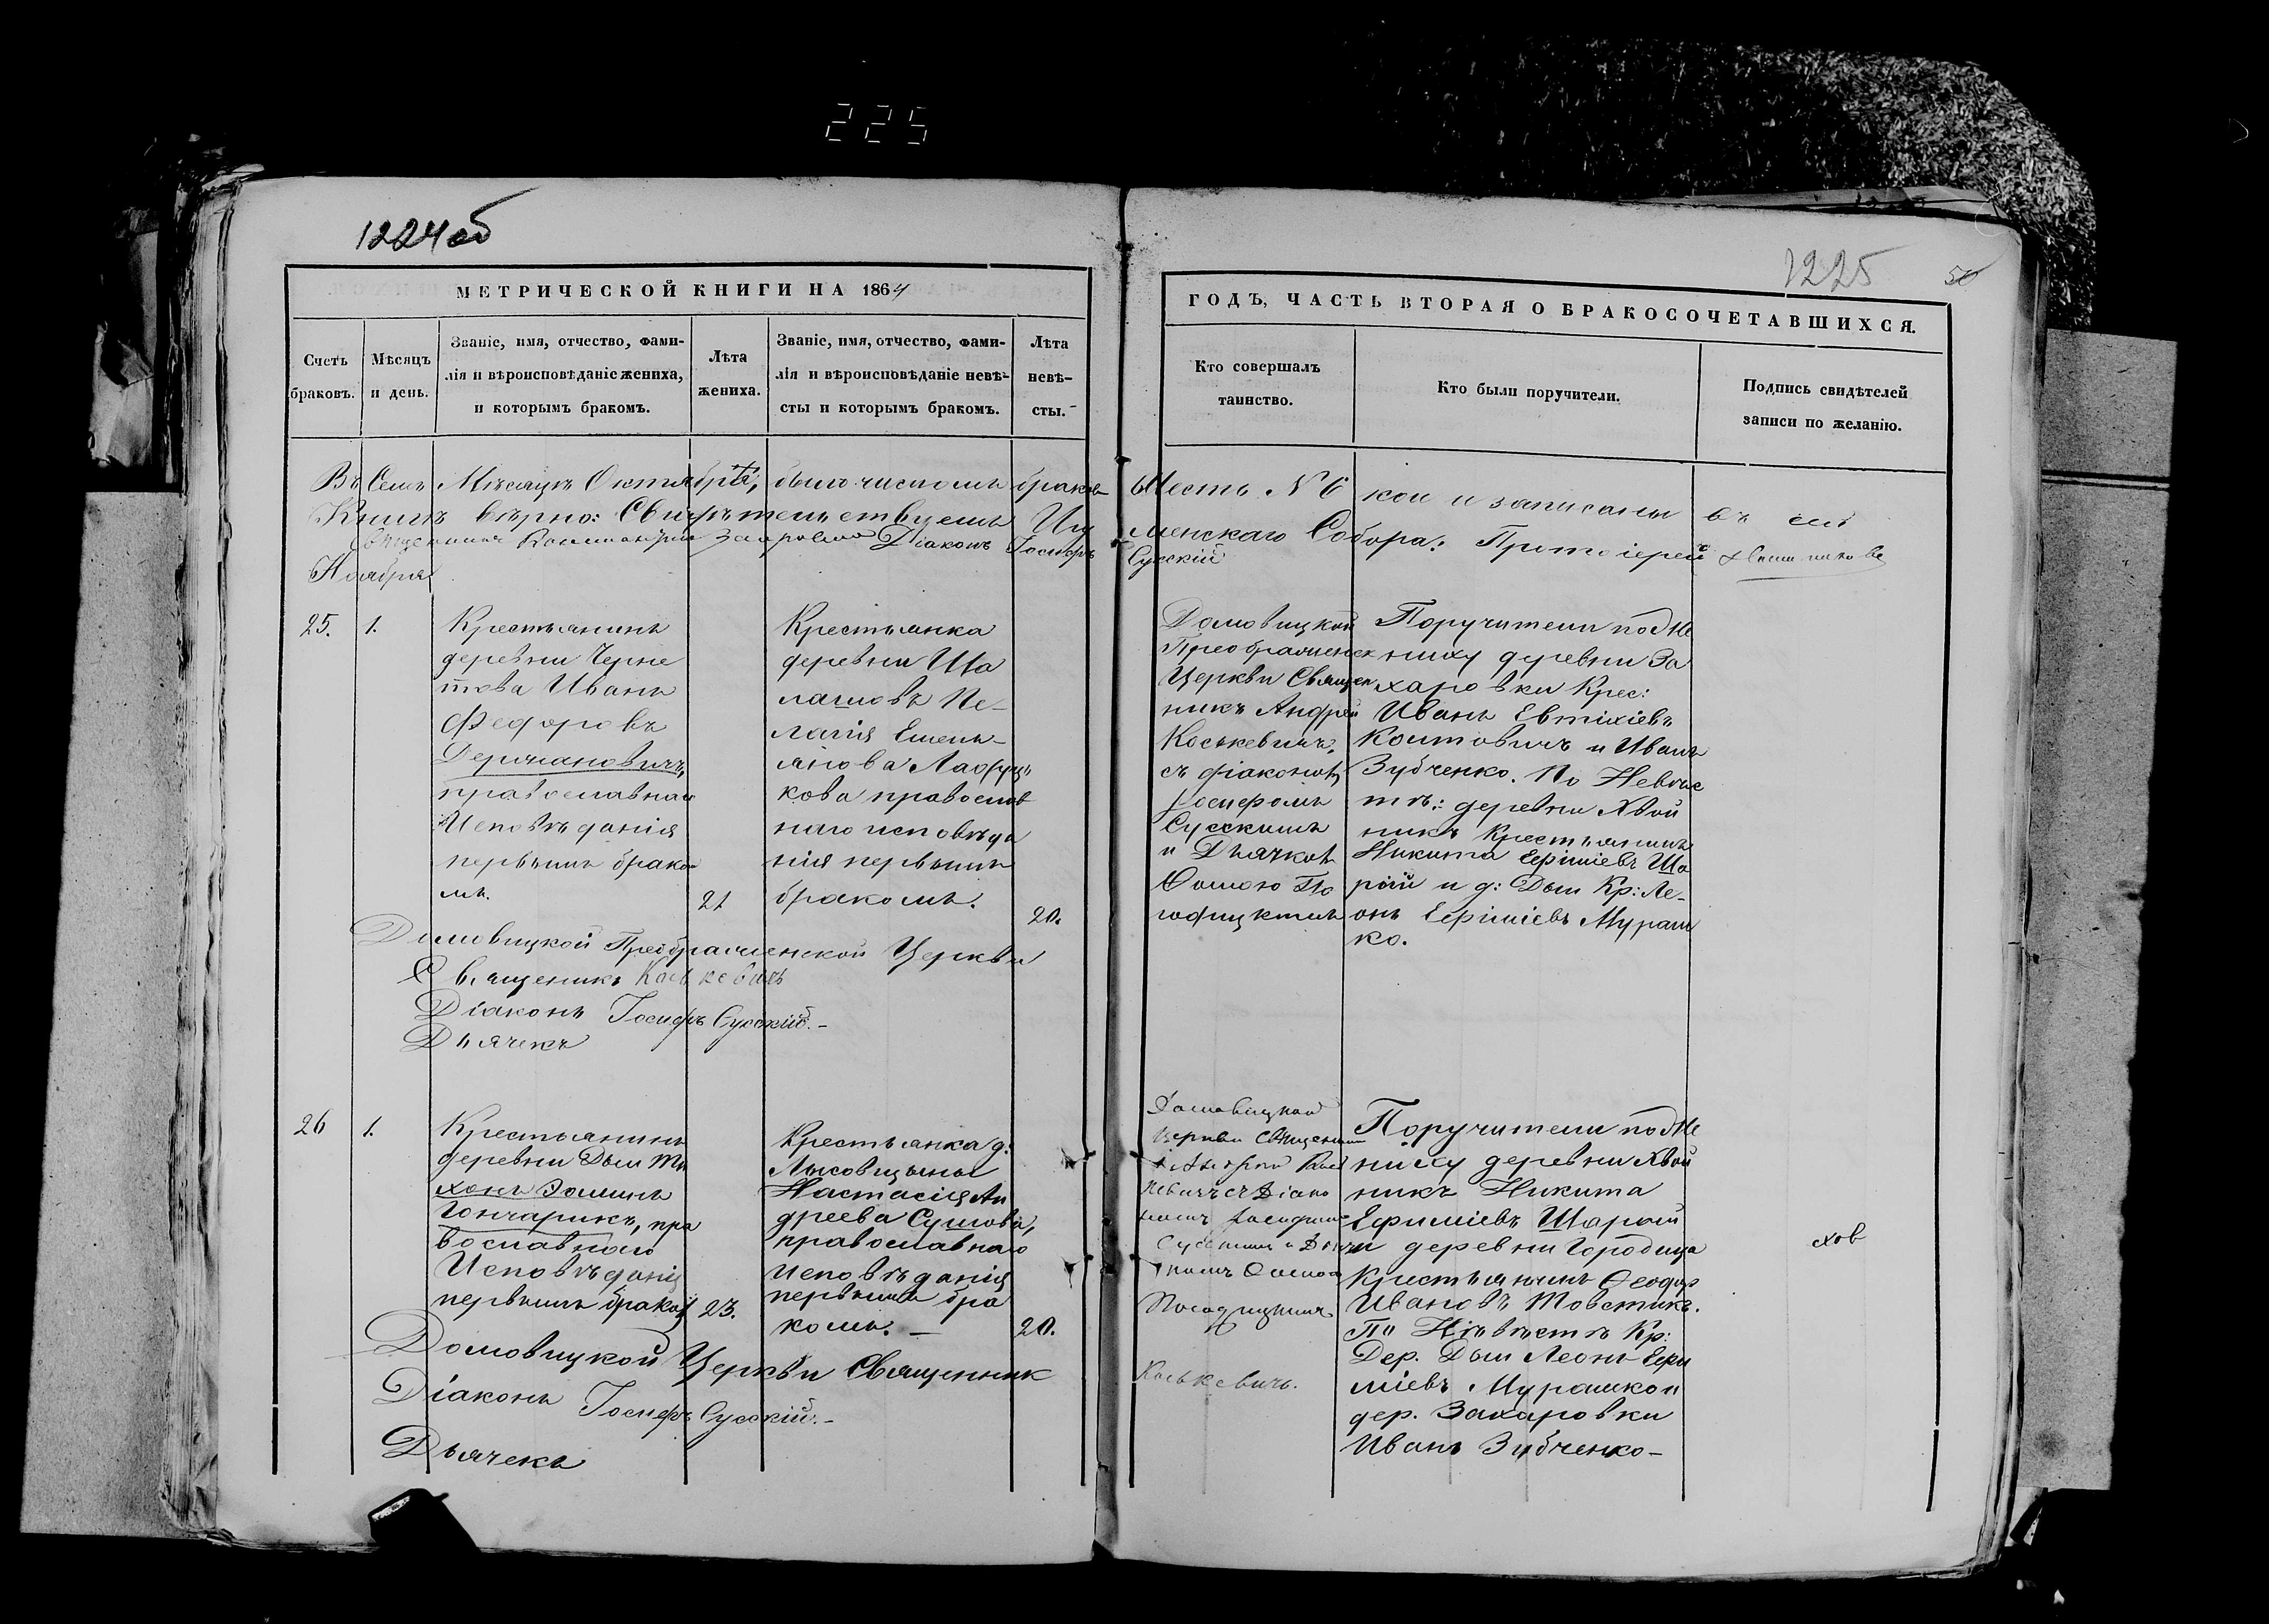 225
1224об
МЕТРИЧЕСКОЙ КНИГИ НА 1864
Счетъ браковъ.
Мѣсяцъ и день.
Званіе, имя, отчество, фами-
лія и вѣроисповѣданіе жениха,
и которымъ бракомъ.
Лѣта жениха.
Званіе, имя, отчество, фами-
лія и вѣроисповѣданіе невѣ-
сты и которымъ бракомъ.
Лѣта невѣ-
сты.
Въ Семъ Мѣсяцѣ Октябрѣ, было числомъ браковъ
Книгѣ вѣрно: Свидѣтельствуемъ Игу
Священникъ Діаконъ Іосифъ
Ноября
25.
1.
Крестьянинъ
деревни Черне
това Иванъ
Федоровъ
Держановичъ,
православнаго
Исповѣданія
первымъ брако
мъ.
21
Крестьянка
деревни Ша
лашовъ Пе-
лагія Емель-
янова
кова православ
наго исповѣда
нія первымъ
бракомъ.
20.
Домовицкой Преображенской Церкви
Священникъ Коськевичъ
Діаконъ Іосифъ Сусскій.-
Дьячекъ
26
1.
Крестьянинъ
деревни Дыи Ти
хонъ Фоминъ
Гончарикъ, пра
вославнаго
Исповѣданія
первымъ браком
23.
Крестьянка д:
Лысовщины
Настасія Ан
дреева Сушова,
православнаго
исповѣданія
первымъ бра
комъ. —
20.
Домовицкой Церкви Священник
Діаконъ Іосифъ Сусскій.-
Дьячекъ
1225
50
ГОДЪ, ЧАСТЬ ВТОРАЯ О БРАКОСОЧЕТАВШИХСЯ.
Кто совершалъ
таинство.
Кто были поручители.
Подпись свидѣтелей
записи по желанію.
Шесть N 6 кои и записаны въ сей
менскаго Собора: Протоіерей
Сусскій
Домовицкой
Преображенск
Церкви Священ
никъ Андрей
Коськевичъ.
съ діакономъ
Іосифомъ
Сусскимъ
и Дьячком
Фомою По
годицкимъ
Поручители по Же
ниху деревни За
харовки Крес:
Иванъ Евтихіевъ
Контовичъ и Иванъ
Зубченко. По Невѣс
тѣ: деревни Хвой
никъ Крестьянинъ
Никита Ефиміевъ Ша
рый и д: Дыи Кр: Ле-
онъ Ефиміевъ Мураш
ко.
Домовицкой
Церкви Священник
Андрей Кось
кевичъ съ Діако
номъ Іосифомъ
Сусскимъ и Дья
комъ Фомою
Погодицкимъ
Коськевичъ.
Поручители по Же
ниху деревни Хвой
никъ Никита
Ефиміевъ Шарый
и деревни Городища
Крестьянинъ Ѳеодор
Ивановъ Товстикъ.
По Нѣвѣстѣ Кр:
Дер. Дыи Леонъ Ефи
міевъ Мурашко и
дер. Захаровки
Иванъ Зубченко-
хов